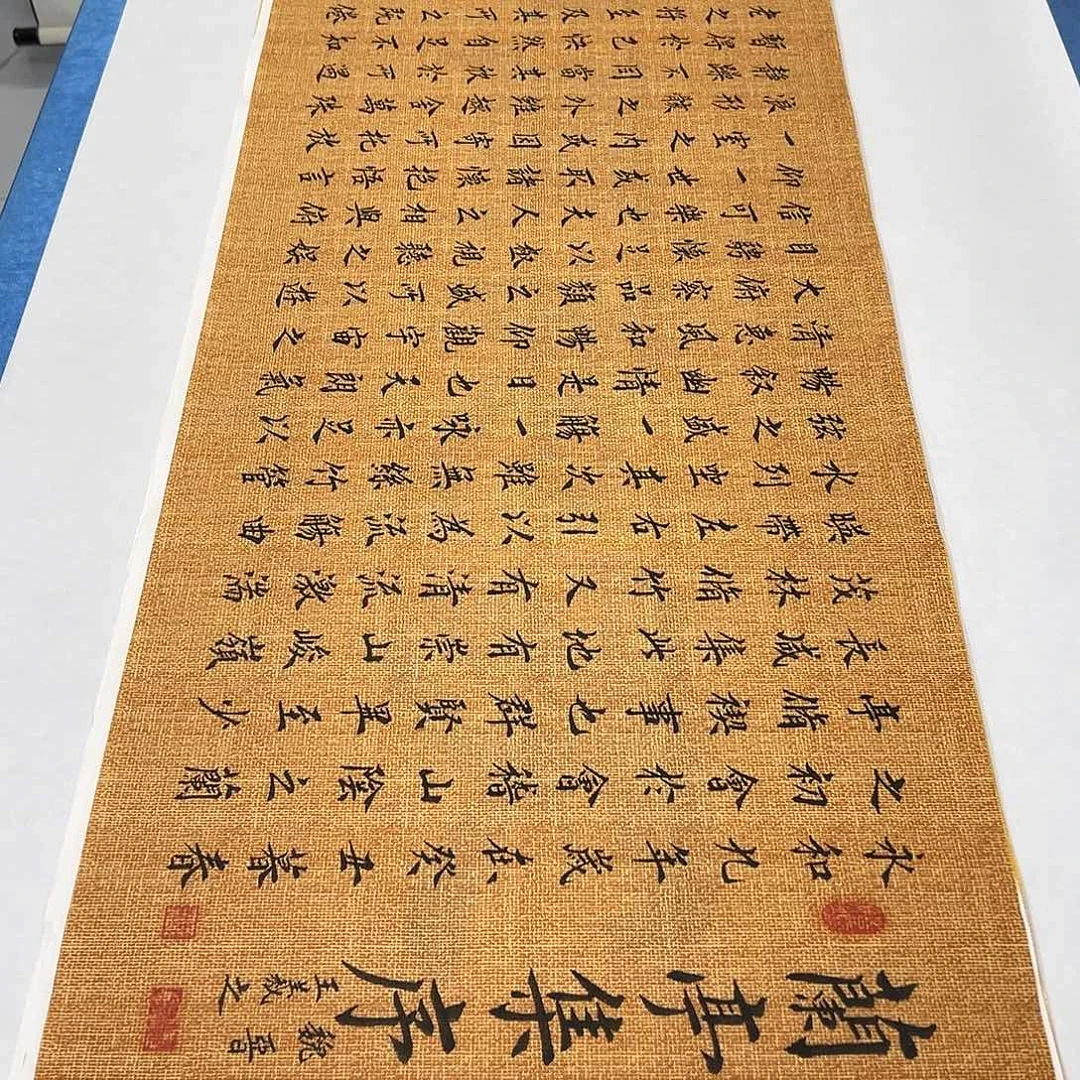 蘭亭集序
魏晉
王羲之
永和九年歲在癸丑暮春
之初會於會稽山陰之蘭
亭脩禊事也群賢畢至少
長咸集此地有崇山峻嶺
茂林脩竹又有清流激湍
暎帶左右引以為流觴曲
水列坐其次雖無絲竹管
弦之盛一觴一咏亦足以
暢叙幽情是日也天朗氣
清惠風和暢仰觀宇宙之
大俯察品類之盛所以遊
目騁懷足以極視聽之娛
信可樂也夫人之相與俯
仰一世或取諸懷抱悟言
一室之內或因寄所托放
浪形骸之外雖趣舍萬殊
靜躁不同當其欣於所遇
暫得於己快然自足不知
老之將至及其所之既倦